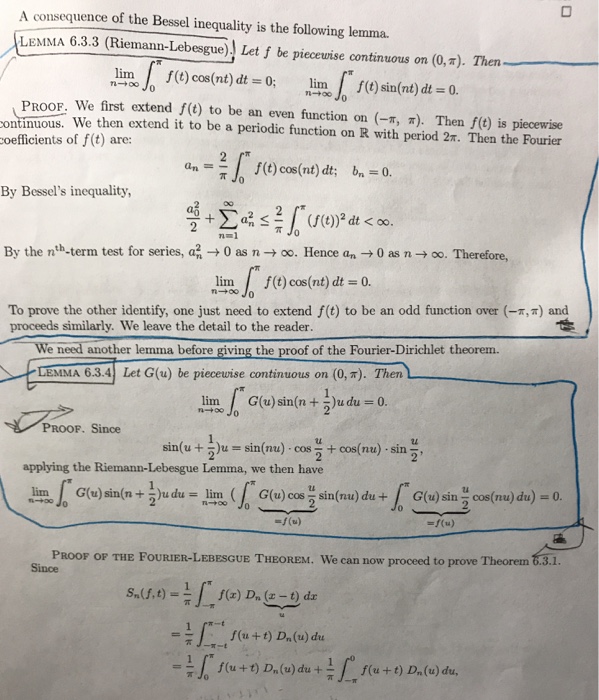 A consequence of the Bessel inequality is the following lemma.
LEMMA 6.3.3 (Riemann-Lebesgue). Let f be piecewise continuous on (0, π). Then
lim_{n→∞} ∫_0^π f(t) cos(nt) dt = 0;  lim_{n→∞} ∫_0^π f(t) sin(nt) dt = 0.
PROOF. We first extend f(t) to be an even function on (−π, π). Then f(t) is piecewise
continuous. We then extend it to be a periodic function on R with period 2π. Then the Fourier
coefficients of f(t) are:
a_n = 2/π ∫_0^π f(t) cos(nt) dt;  b_n = 0.
By Bessel's inequality,
a_0^2/2 + ∑_{n=1}^∞ a_n^2 ≤ 2/π ∫_0^π (f(t))^2 dt < ∞.
By the n^th-term test for series, a_n^2 → 0 as n → ∞. Hence a_n → 0 as n → ∞. Therefore,
lim_{n→∞} ∫_0^π f(t) cos(nt) dt = 0.
To prove the other identify, one just need to extend f(t) to be an odd function over (−π, π) and
proceeds similarly. We leave the detail to the reader.
We need another lemma before giving the proof of the Fourier-Dirichlet theorem.
LEMMA 6.3.4 Let G(u) be piecewise continuous on (0, π). Then
lim_{n→∞} ∫_0^π G(u) sin(n + 1/2)u du = 0.
PROOF. Since
sin(u + 1/2)u = sin(nu) · cos u/2 + cos(nu) · sin u/2,
applying the Riemann-Lebesgue Lemma, we then have
lim_{n→∞} ∫_0^π G(u) sin(n + 1/2)u du = lim_{n→∞} ( ∫_0^π G(u) cos u/2 sin(nu) du + ∫_0^π G(u) sin u/2 cos(nu) du) = 0.
=f(u) =f(u)
PROOF OF THE FOURIER-LEBESGUE THEOREM. We can now proceed to prove Theorem 6.3.1.
Since
S_n(f, t) = 1/π ∫_{−π}^π f(x) D_n (x − t) dx
u
= 1/π ∫_{−π−t}^{π−t} f(u + t) D_n(u) du
= 1/π ∫_0^π f(u + t) D_n(u) du + 1/π ∫_{−π}^0 f(u + t) D_n(u) du,